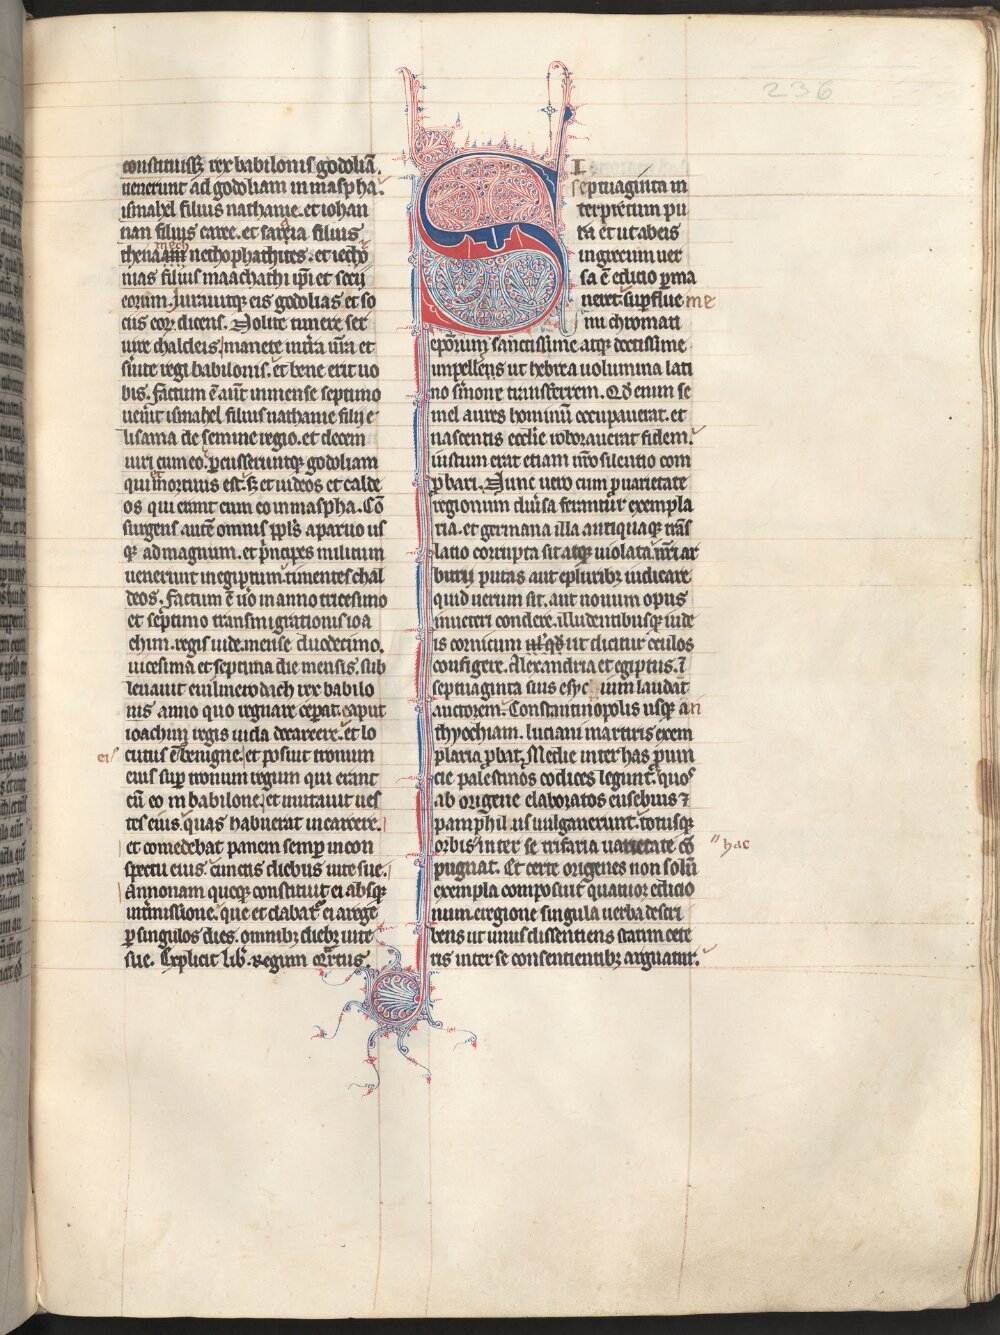 236
constituiss; rex babilonis godoliā.
uenerunt ad godoliam in maspha.
ismahel filius nathanie. et iohan
nan filius caree. et saraia filius
thenameth nethophathites. et iecho
nias filius maachathi ip̄i et socii
eorum. Iurauitq; eis godolias et so
ciis eoꝝ dicens. Nolite timere ser
uire chaldeis. manete in t̄ra ūra et
seruite regi babilonis. et bene erit uo
bis. Factum ē aut̄ in mense septimo
uenit ismahel filius nathanie filii e
lisama de semine regio. et decem
uiri cum eo. ꝑcusseruntq; godoliam
qui mortuus est. s; et iudeos et calde
os qui erant cum eo in maspha. Cō
surgens autē omnis ppl̄s a paruo us
q; ad magnum. et pͥncipes militum
uenerunt in egiptum timentes chal
deos. Factum ē ūo in anno tricesimo
et septimo transmigrationis ioa
chim. regis iude. mense duodecimo.
uicesima et septima die mensis. sub
leuauit euilmerodach rex babilo
nis anno quo regnare ceperat. caput
ioachim regis iuda de carcere. et lo
eiˢ cutus ē benigne. et posuit tronum
eius suꝑ tronum regum qui erant
cū eo in babilone. et mutauit ues
tes eius quas habuerat in carcere.
et comedebat panem semꝑ in con
spectu eius. cunctis diebus uite sue.
Annonam quoq; constituit ei absq;
int̄missione. que et dabatͬ ei a rege
ꝑ singulos dies. omnibꝫ diebꝫ uite
sue. Explicit lib̄. Regum Qͣrtus.
SI
septuaginta in
terpretum pu
ra et ut ab eis
in grecum uer
sa ē edicio ꝑma
neret. suꝑflue me
mi chromati
ep̄orum sanctissime atq; doctissime
impelleres ut hebrea uolumina lati
no s̄mone transferrem. Qd̄ enim se
mel aures hominū occupauerat. et
nascentis ecclīe roborauerat fidem.
iustum erat etiam nr̄o silentio com
ꝓbari. Nunc uero cum ꝓ uarietate
regionum diūsa ferantur exempla
ria. et germana illa antiquaq; trās
latio corrupta sit atq; uiolata. nr̄i ar
bitrii putas aut e pluribꝫ iudicare
quid uerum sit. aut nouum opus
in ueteri condere. illudentibusq; iude
is cornicum ut dicitur oculos
configere. Alexandria et egiptus. ⁊
septuaginta suis esyc ium laudat
auctorem. Constantinopolis usq; an
thyochiam. luciani martiris exem
plaria ꝓbat. Medie inter has ꝓuin
cie palestinos codices legunt. quos
ab origene elaboratos eusebius ⁊
pamphil us uulgauerunt. totusq;
orbis inter se trifaria uarietate cō "hac
pugnat. Et certe origenes non solū
exempla composuit quatuor editio
num. e regione singula uerba descri
bens ut unus dissentiens statim cete
ris inter se consentientibꝫ arguatur.